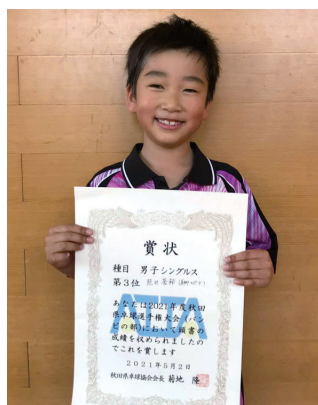 賞状
種目 男子シングルス
第3位
あなたは2021年度秋田
県卓球選手権大会(バン
ビの部)において頭書の
成績を収められましたの
でこれを賞します
2021年5月2日
秋田県卓球協会会長 菊地 隆